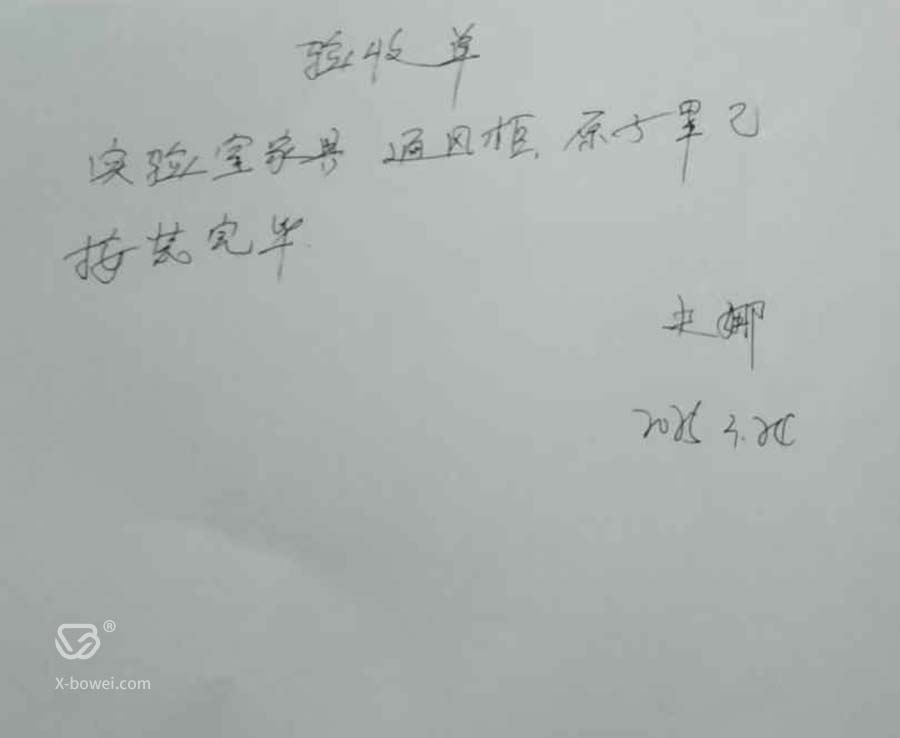 验收单
实验室家具 通风柜, 原子罩已
接装完毕.
史娜
2025 3.25
®
X-bowei.com